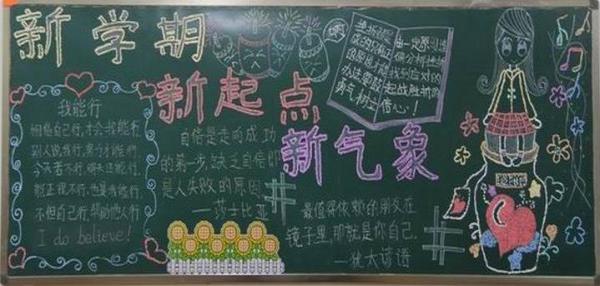 新学期
新起点
新气象
我能行
相信自己行,才会我能行
别人说我行,努力才能行
今天若不行,明天还能行
能正视不行,也是我能行
不但自己行,帮助他人行
I do believe!
自信是走向成功
的第一步,缺乏自信即
是人失败的原因
——莎士比亚
最值得依赖的朋友在
镜子里,那就是你自己.
——犹太谚语
勇气,树立信心!